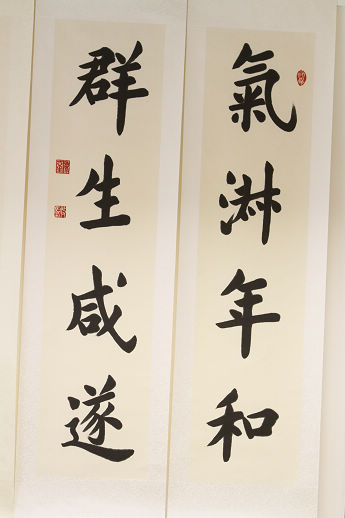 氣淑年和
群生咸遂